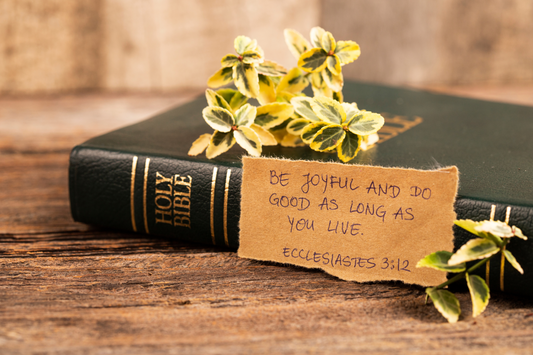 HOLY
BIBLE
BE JOYFUL AND DO
GOOD AS LONG AS
YOU LIVE.
ECCLESIASTES 3:12